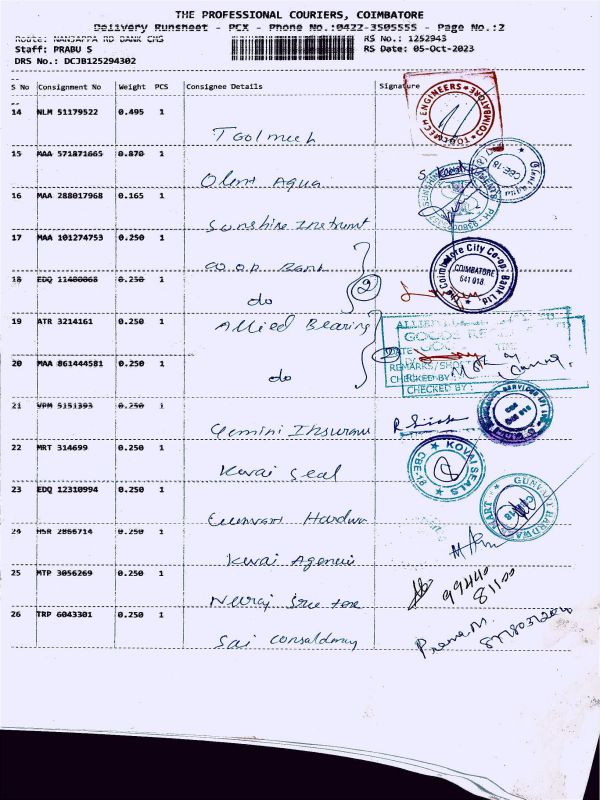 THE PROFESSIONAL COURIERS, COIMBATORE
Delivery Runsheet - PCX - Phone No.:0422-3505555 - Page No.:2
Route: NANJAPPA RD BANK CMS
RS No.: 1252943
Staff: PRABU S
RS Date: 05-Oct-2023
DRS No.: DCJB125294302
S No Consignment No Weight PCS Consignee Details Signature
14 NLM 51179522 0.495 1
Toolmech
15 MAA 571871665 0.870 1
Olent Aqua
16 MAA 288017968 0.165 1
Sunshine Instrument
17 MAA 101274753 0.250 1
CO.O.P. Bank
18 EDQ 11400068 0.250 1
do
2
19 ATR 3214161 0.250 1
Allied Bearing
20 MAA 861444581 0.250 1
do
21 VPM 5151393 0.250 1
Gemini Insurance
22 MRT 314699 0.250 1
Kovai Seal
23 EDQ 12310994 0.250 1
Gunvant Hardwa
24 HSR 2866714 0.250 1
Kovai Agencies
25 MTP 3056269 0.250 1
Neeraj
26 TRP 6043301 0.250 1
Sai
TOOLMECH ENGINEERS COIMBATORE
CBE-18
SUNSHINE
The Coimbatore City Co-op. Bank Ltd.
COIMBATORE
641 018.
ALLIED
GOODS
DATE
REMARKS/SHO
CHECKED BY:
CHECKED BY:
KOVAI SEALS
CBE-18
GUNVANT HARDWARE MART
99440
81100
Prema.M.